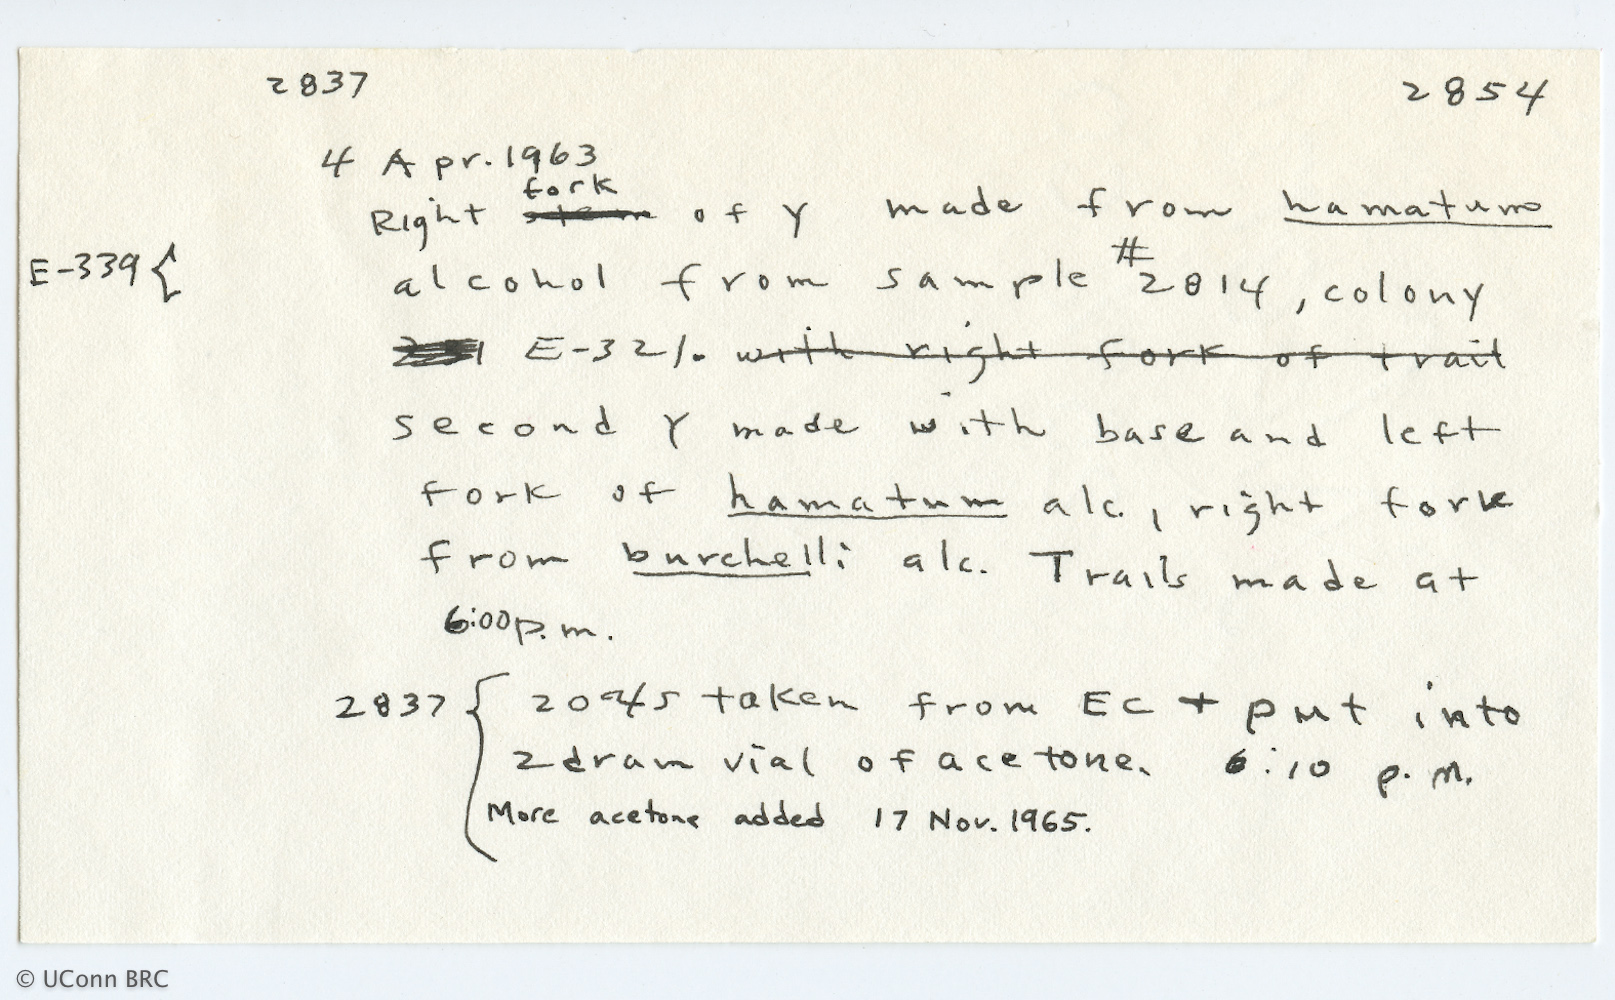 2837 2854
4 Apr. 1963
fork
Right stem of Y made from hamatum
E-339 { alcohol from sample #2814, colony
E-321. with right fork of trail
second Y made with base and left
fork of hamatum alc., right fork
from burchelli alc. Trails made at
6:00 p.m.
2837 { 20 taken from EC + put into
2 dram vial of acetone. 6:10 p.m.
More acetone added 17 Nov. 1965.
© UConn BRC